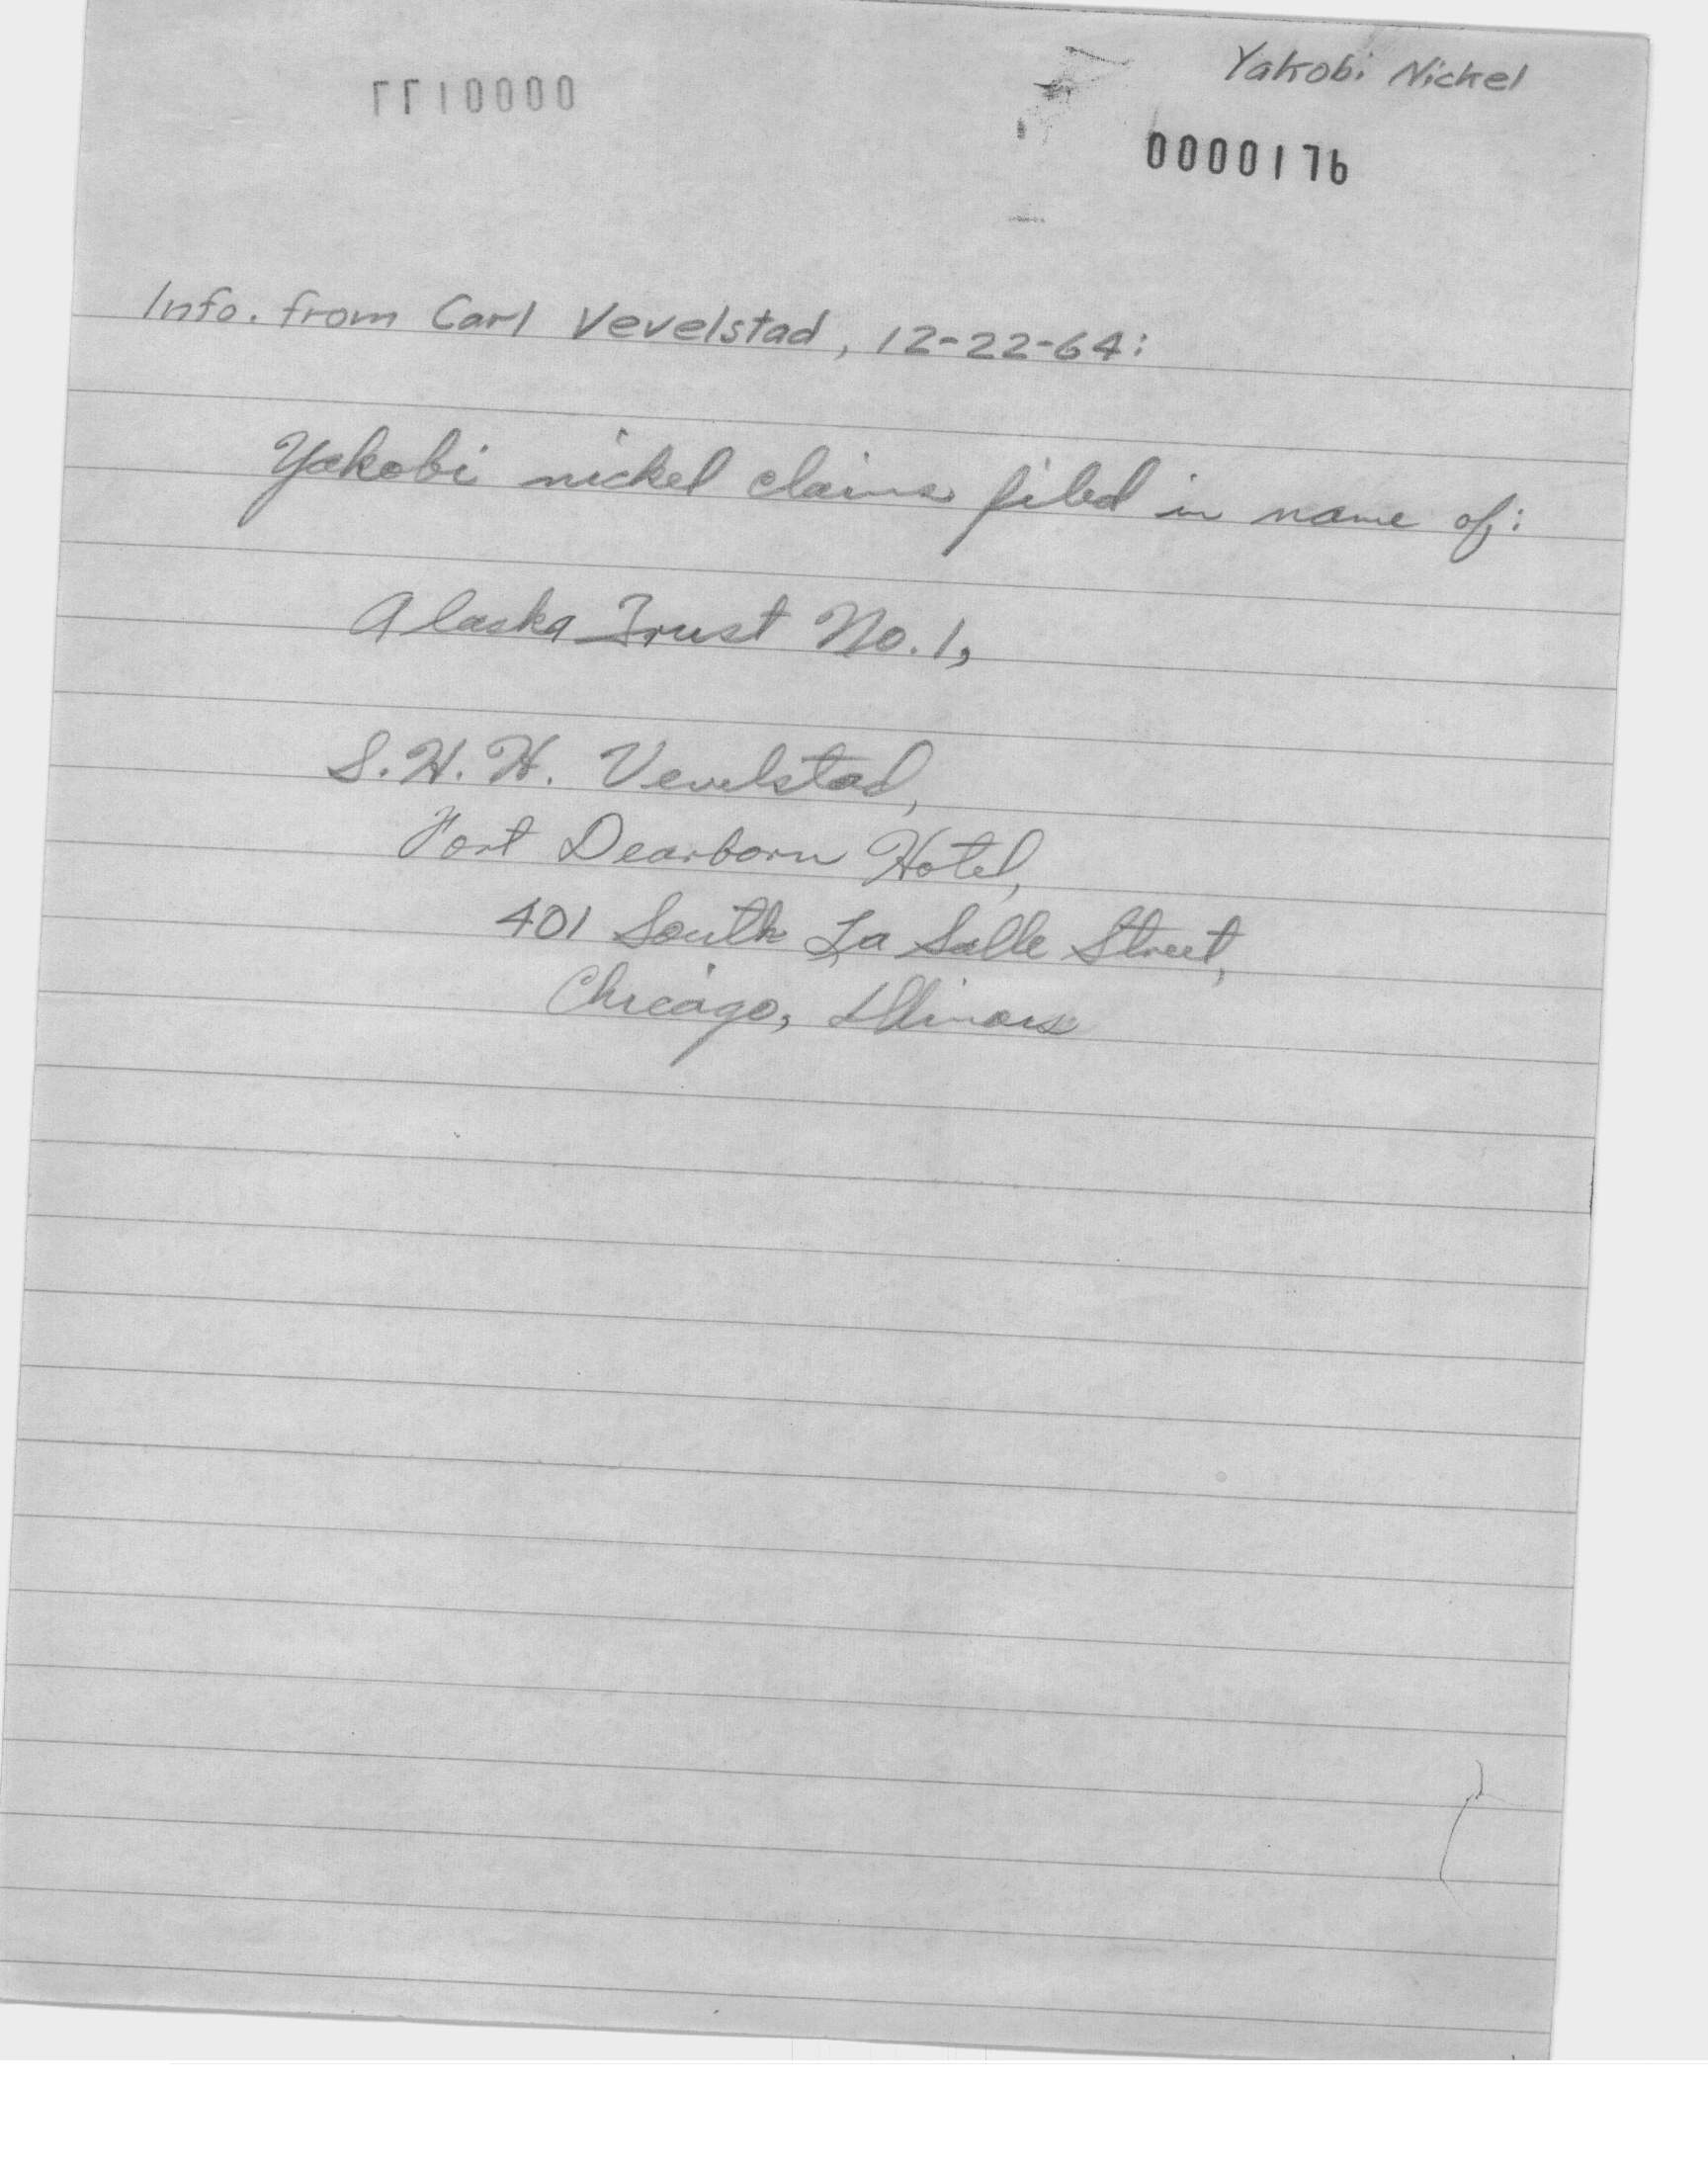 Yakobi Nickel
0000177
0000176
Info. from Carl Vevelstad, 12-22-64:
Yakobi nickel claims filed in name of:
Alaska Trust No. 1,
S.H.H. Vevelstad,
Fort Dearborn Hotel,
401 South La Salle Street,
Chicago, Illinois